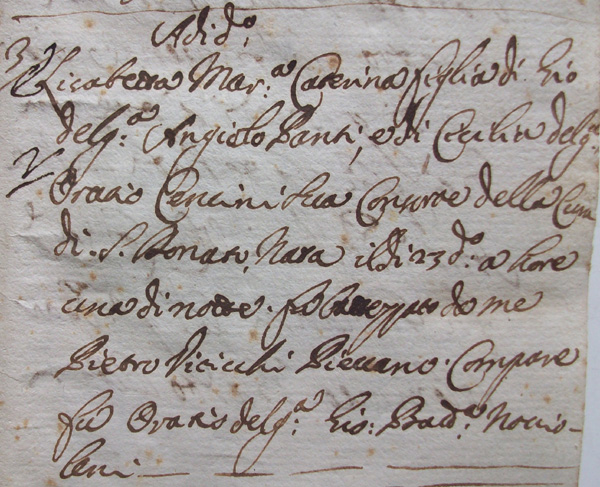 A di d.º
Elisabetta Mar.ª Caterina figlia di Gio
del q.ª Angiolo Santi, e di Cecilia del q.ª
Oratio Cencini sua Consorte della Cura
di S. Donato, Nata il dì 23 d.º a hore
una di notte. fù battezzato da me
Pietro Pievano. Compare
fù Oratio del q.ª Gio: Bad.ª Nocio-
leni